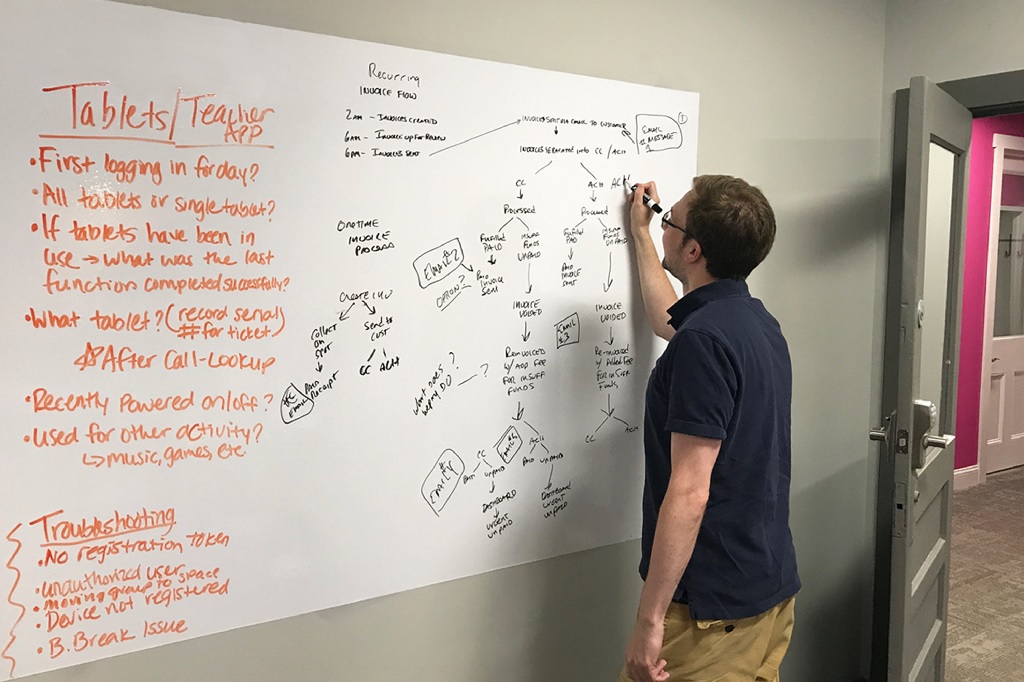 Tablets/Teacher
APP
• First logging in for day?
• All tablets or single tablet?
• If tablets have been in
use → what was the last
function completed successfully?
• What tablet? (record serial
# for ticket)
☆ After Call-Lookup
• Recently Powered on/off?
• Used for other activity?
↳ music, games, etc.
Troubleshooting
• No registration token
• unauthorized user
• moving group to space
• Device not registered
• B. Break Issue
Recurring
INVOICE FLOW
2AM - INVOICES CREATED
6AM - INVOICE UP FOR REVIEW
6PM - INVOICES SENT
INVOICES SENT VIA EMAIL TO CUSTOMER
INVOICES SEPARATED INTO CC / ACH
EMAIL
MESSAGE
1
CC
Processed
Fulfilled
PAID
PAID
INVOICE
SENT
INSUFF
FUNDS
UNPAID
INVOICE
VOIDED
RE-INVOICED
W/ ADD FEE
FOR INSUFF
FUNDS
CC
PAID
UNPAID
DASHBOARD
URGENT
UNPAID
ACH
PAID
UNPAID
DASHBOARD
URGENT
UNPAID
ACH
Processed
Fulfilled
PAID
PAID
INVOICE
SENT
INSUFF
FUNDS
UNPAID
INVOICE
VOIDED
RE-INVOICED
W/ Added FEE
FOR INSUFF
Funds
CC
ACH
ACH
EMAIL 2
OPTION 2
EMAIL
#3
EMAIL
ONETIME
INVOICE
PROCESS
Create INV
COLLECT
ON
SPOT
PAID
RECEIPT
EMAIL
Send to
CUST
CC ACH
what does
DO?
?